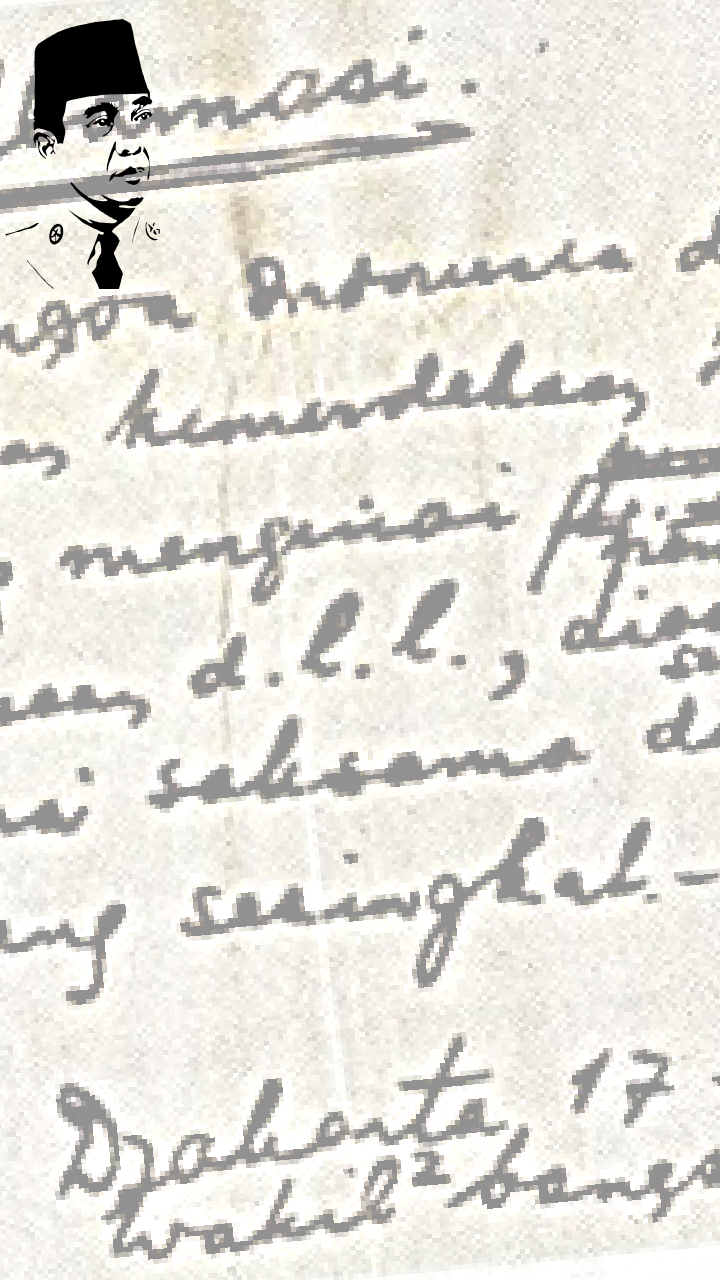 masi.
ngsa Indonesia d
an kemerdekaan
mengenai
aan d.l.l., dis
saksama da
ang sesingkat-
Djakarta 17 -
Wakil² bangs